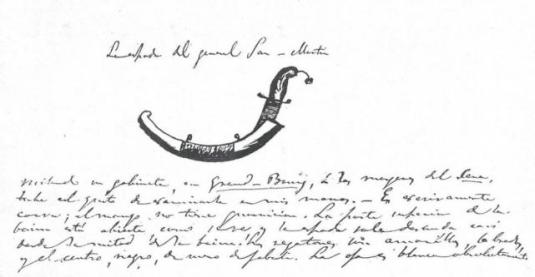 La espada del general San-Martin
visitando su gabinete, en Grand-Bourg, á las margenes del Sena,
tube el gusto de examinarla en mis manos. — Es excesivamente
corva; el mango no tiene guarnicion. La parte superior de la
baina está abierta como se ve, y la espada sale desnuda casi
desde la mitad de la baina. Los regatones son amarillos labrados,
y el centro, negro, de cuero de zapa. La es blanca absolutamente